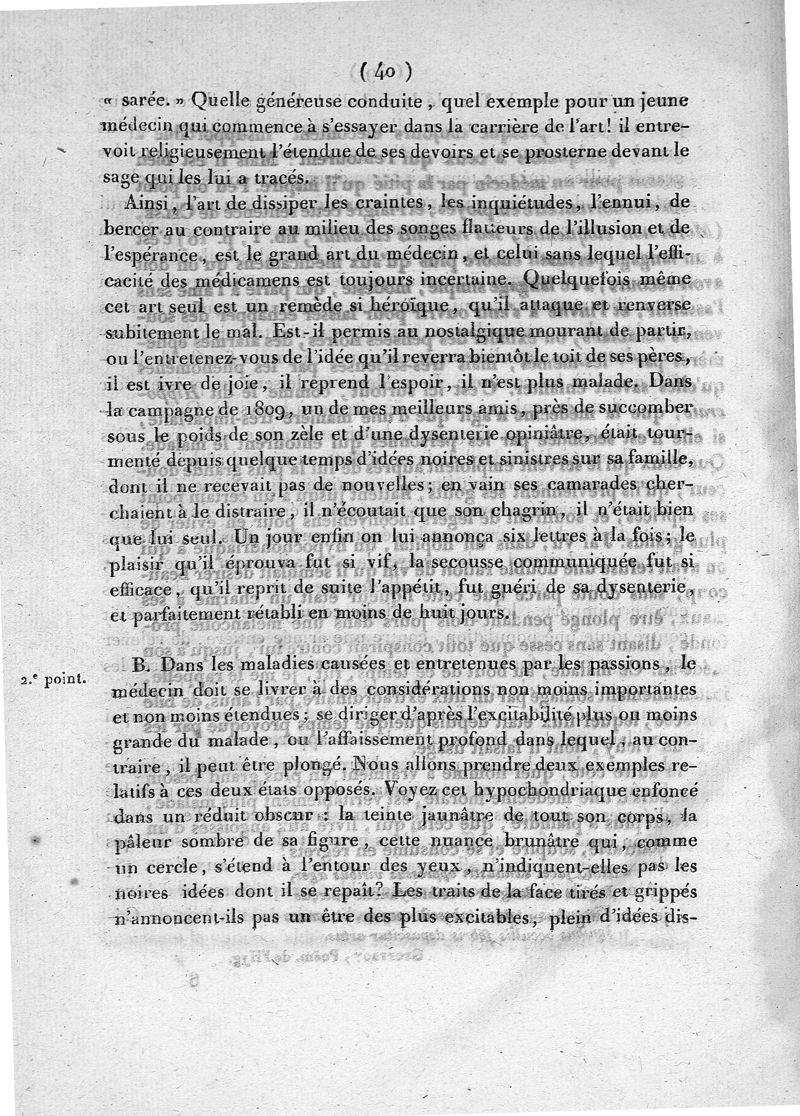 ( 40 )
« sarée. » Quelle généreuse conduite, quel exemple pour un jeune
médecin qui commence à s'essayer dans la carrière de l'art! il entre-
voit religieusement l'étendue de ses devoirs et se prosterne devant le
sage qui les lui a tracés.
Ainsi, l'art de dissiper les craintes, les inquiétudes, l'ennui, de
bercer au contraire au milieu des songes flatteurs de l'illusion et de
l'espérance, est le grand art du médecin, et celui sans lequel l'effi-
cacité des médicamens est toujours incertaine. Quelquefois même
cet art seul est un remède si héroïque, qu'il attaque et renverse
subitement le mal. Est-il permis au nostalgique mourant de partir,
ou l'entretenez-vous de l'idée qu'il reverra bientôt le toit de ses pères,
il est ivre de joie, il reprend l'espoir, il n'est plus malade. Dans
la campagne de 1809, un de mes meilleurs amis, près de succomber
sous le poids de son zèle et d'une dysenterie opiniâtre, était tour-
menté depuis quelque temps d'idées noires et sinistres sur sa famille,
dont il ne recevait pas de nouvelles; en vain ses camarades cher-
chaient à le distraire, il n'écoutait que son chagrin, il n'était bien
que lui seul. Un jour enfin on lui annonça six lettres à la fois; le
plaisir qu'il éprouva fut si vif, la secousse communiquée fut si
efficace, qu'il reprit de suite l'appétit, fut guéri de sa dysenterie,
et parfaitement rétabli en moins de huit jours.
2.e point.
B. Dans les maladies causées et entretenues par les passions, le
médecin doit se livrer à des considérations non moins importantes
et non moins étendues; se diriger d'après l'excitabilité plus ou moins
grande du malade, ou l'affaissement profond dans lequel, au con-
traire, il peut être plongé. Nous allons prendre deux exemples re-
latifs à ces deux états opposés. Voyez cet hypochondriaque enfoncé
dans un réduit obscur : la teinte jaunâtre de tout son corps, la
pâleur sombre de sa figure, cette nuance brunâtre qui, comme
un cercle, s'étend à l'entour des yeux, n'indiquent-elles pas les
noires idées dont il se repaît? Les traits de la face tirés et grippés
n'annoncent-ils pas un être des plus excitables, plein d'idées dis-